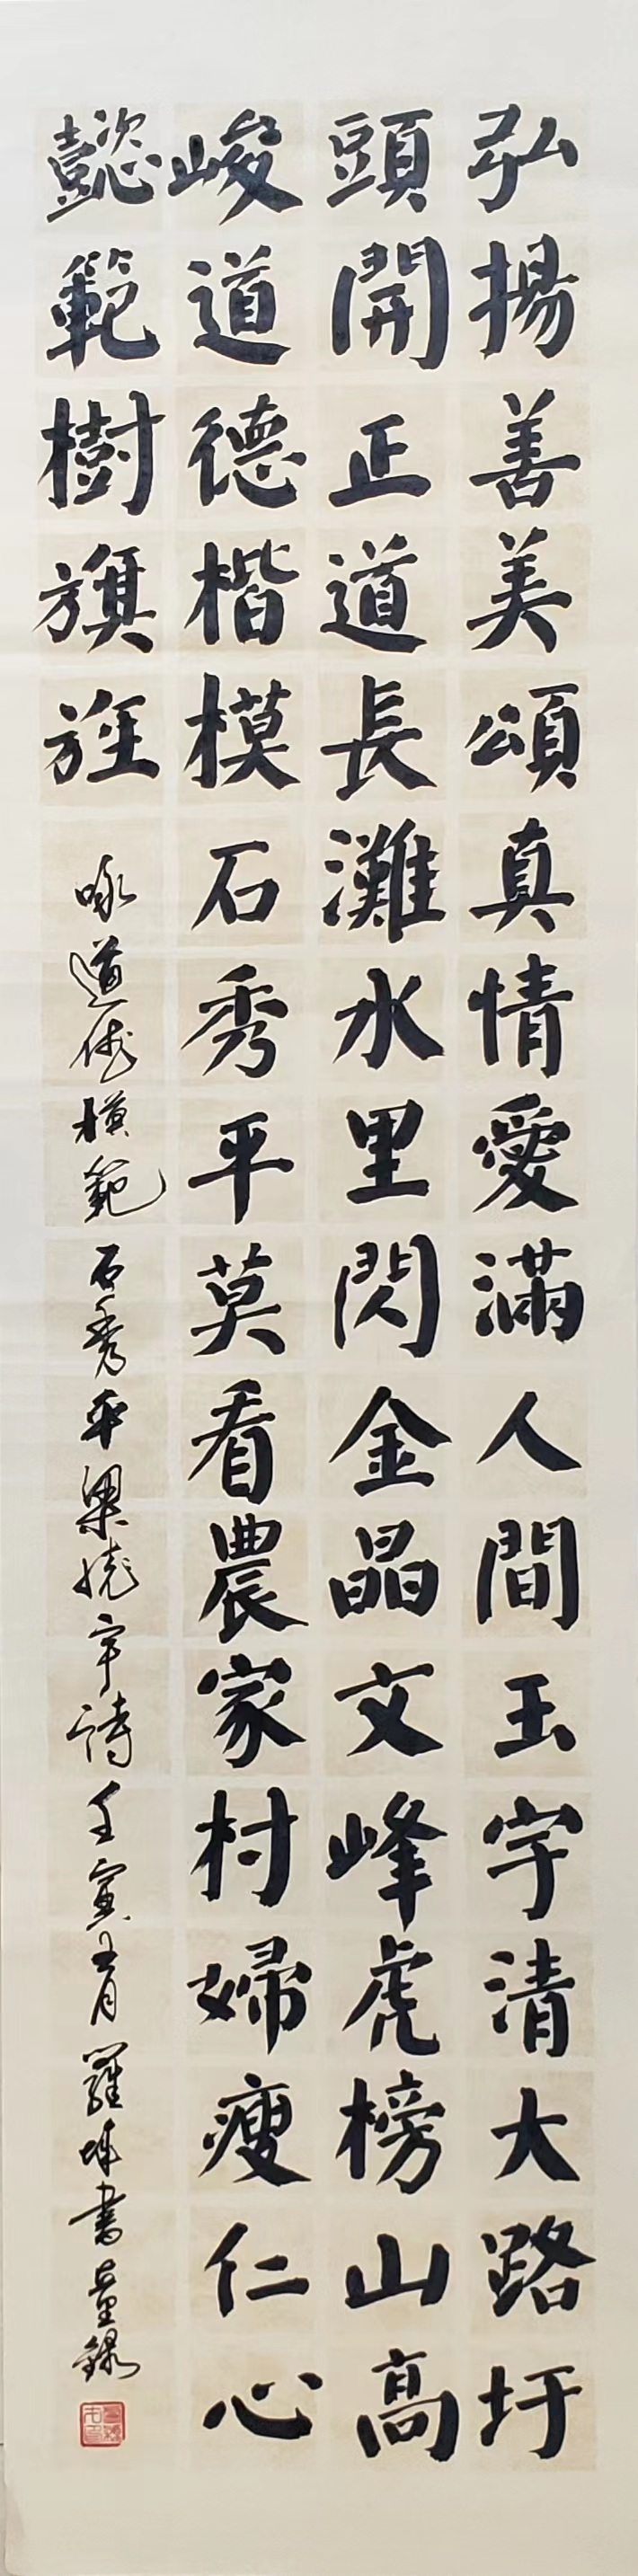 弘揚善美頌真情愛滿人間玉宇清大路圩
頭開正道長灘水里閃金晶文峰虎榜山高
峻道德楷模石秀平莫看農家村婦瘦仁心
懿範樹旗旌
咏道德模範石秀平梁曉宇詩壬寅十月羅坤書並錄